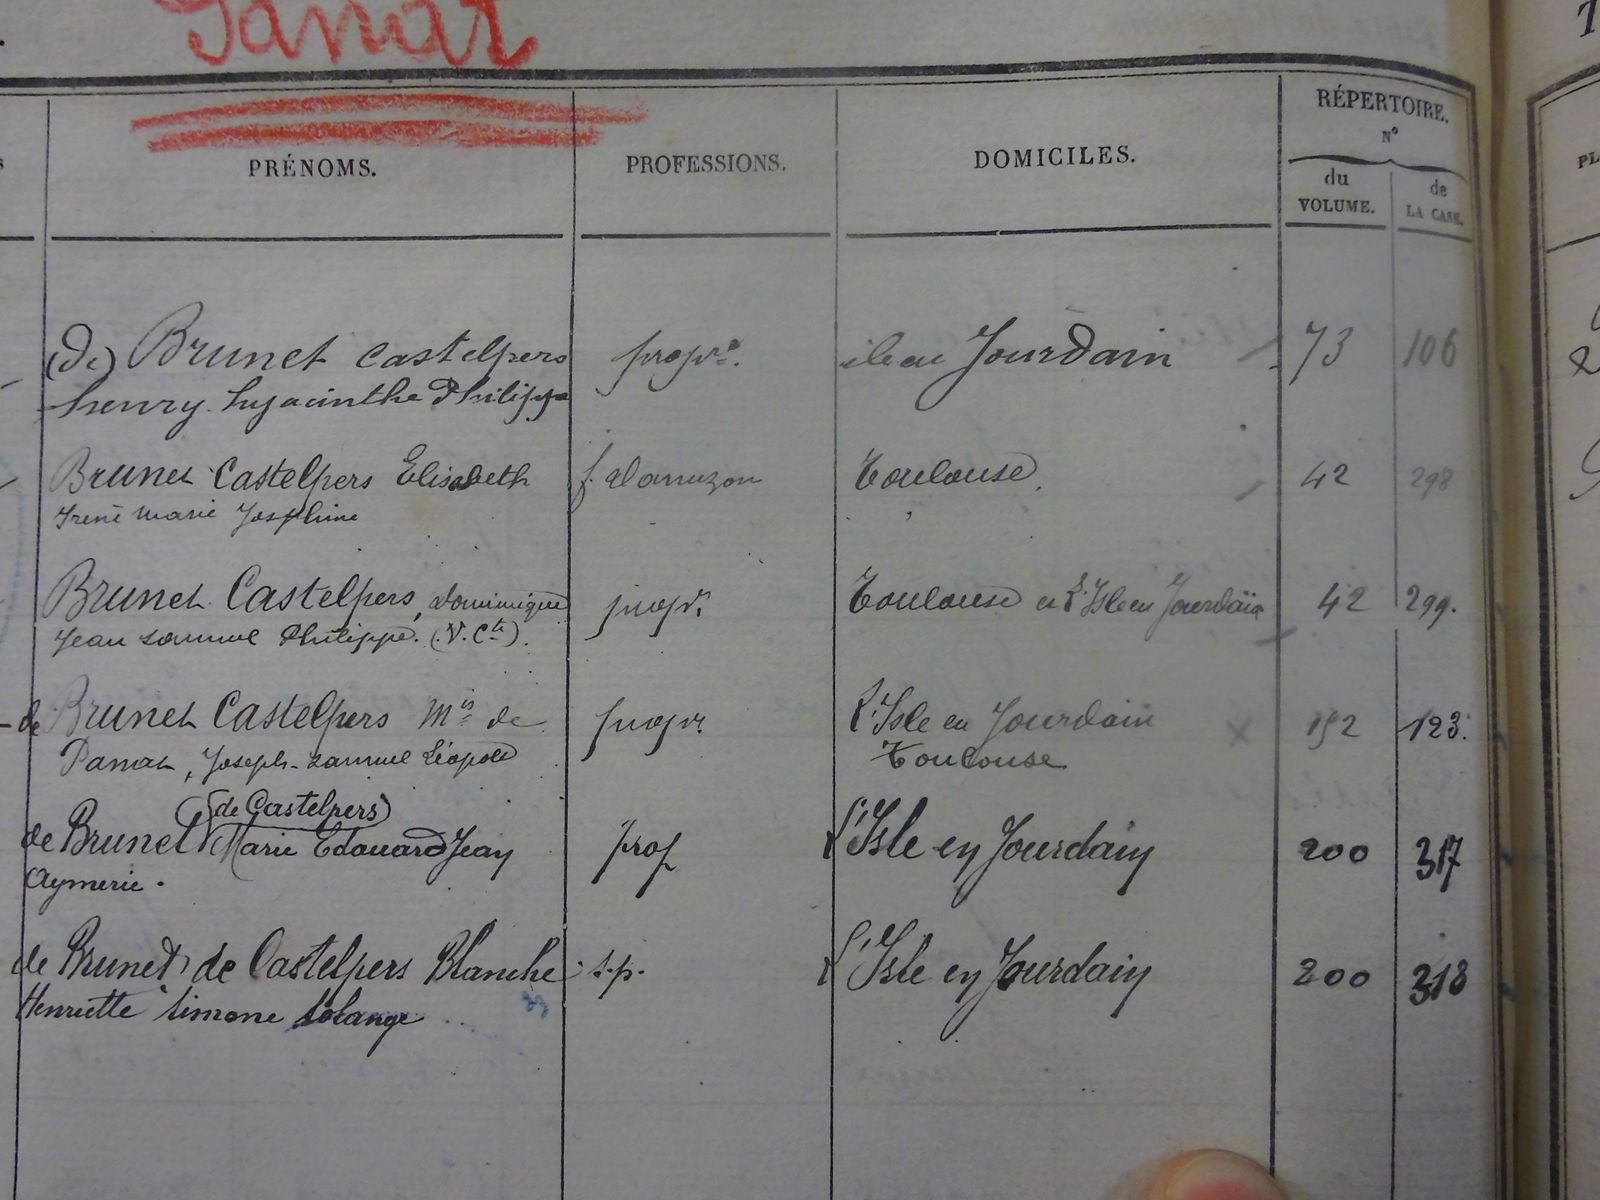 Panat
PRÉNOMS.
PROFESSIONS.
DOMICILES.
RÉPERTOIRE.
N°
du
VOLUME.
de
LA CASE.
(de) Brunet Castelpers propre. ile en Jourdain 73 106
henry hyacinthe Philippe
Brunet Castelpers Elisabeth Toulouse 42 298
Irene Marie Josephine
Brunet Castelpers, Dominique propr. Toulouse et L'Isle en Jourdain 42 299.
Jean Samuel Philippe. (V. Cte).
de Brunet Castelpers Mis de propr. L'Isle en Jourdain 152 123.
Panat, Joseph-Samuel Léopold Toulouse
(de Castelpers)
de Brunet Marie Edouard Jean prop L'Isle en Jourdain 200 317
Aymerie.
de Brunet de Castelpers Blanche s.p. L'Isle en Jourdain 200 318
Henriette Simone Solange